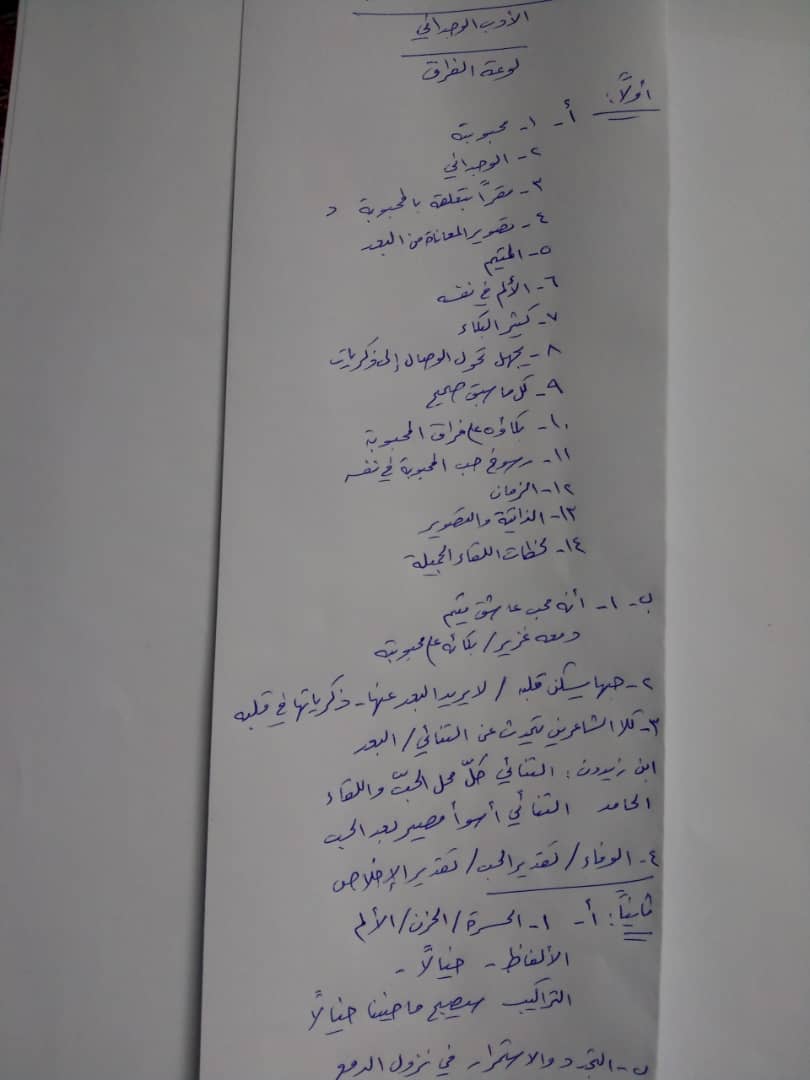 الأدب الوجداني
لوعة الفراق
أولاً:
أ- ١- محبوبته
٢- الوجداني
٣- مقرّاً بتعلقه بالمحبوبة
٤- تصوير المعاناة من البعد
٥- المتيم
٦- الألم في نفسه
٧- كثير البكاء
٨- يجهل تحول الوصال إلى ذكريات
٩- كل ما سبق صحيح
١٠- بكاؤه على فراق المحبوبة
١١- رسوخ حب المحبوبة في نفسه
١٢- الزمان
١٣- الذاتية والتصوير
١٤- لحظات اللقاء الجميلة
ب- ١- أنه محب عاشق متيم
دمعه غزير / بكائه على محبوبته
٢- حبها يسكن قلبه / لا يريد البعد عنها - ذكرياتها في قلبه
٣- كلا الشاعرين يتحدث عن التنائي / البعد
ابن زيدون: التنائي حلّ محل الحبّ واللقاء
الحامد التنائي أسوأ مصير بعد الحب
٤- الوفاء / تقدير الحب / تقدير الإخلاص
ثانياً: أ- ١- الحسرة / الحزن / الألم
الألفاظ - خيالاً -
التراكيب سيصبح ماضينا خيالاً
ب- التجدد والاستمرار في نزول الدمع